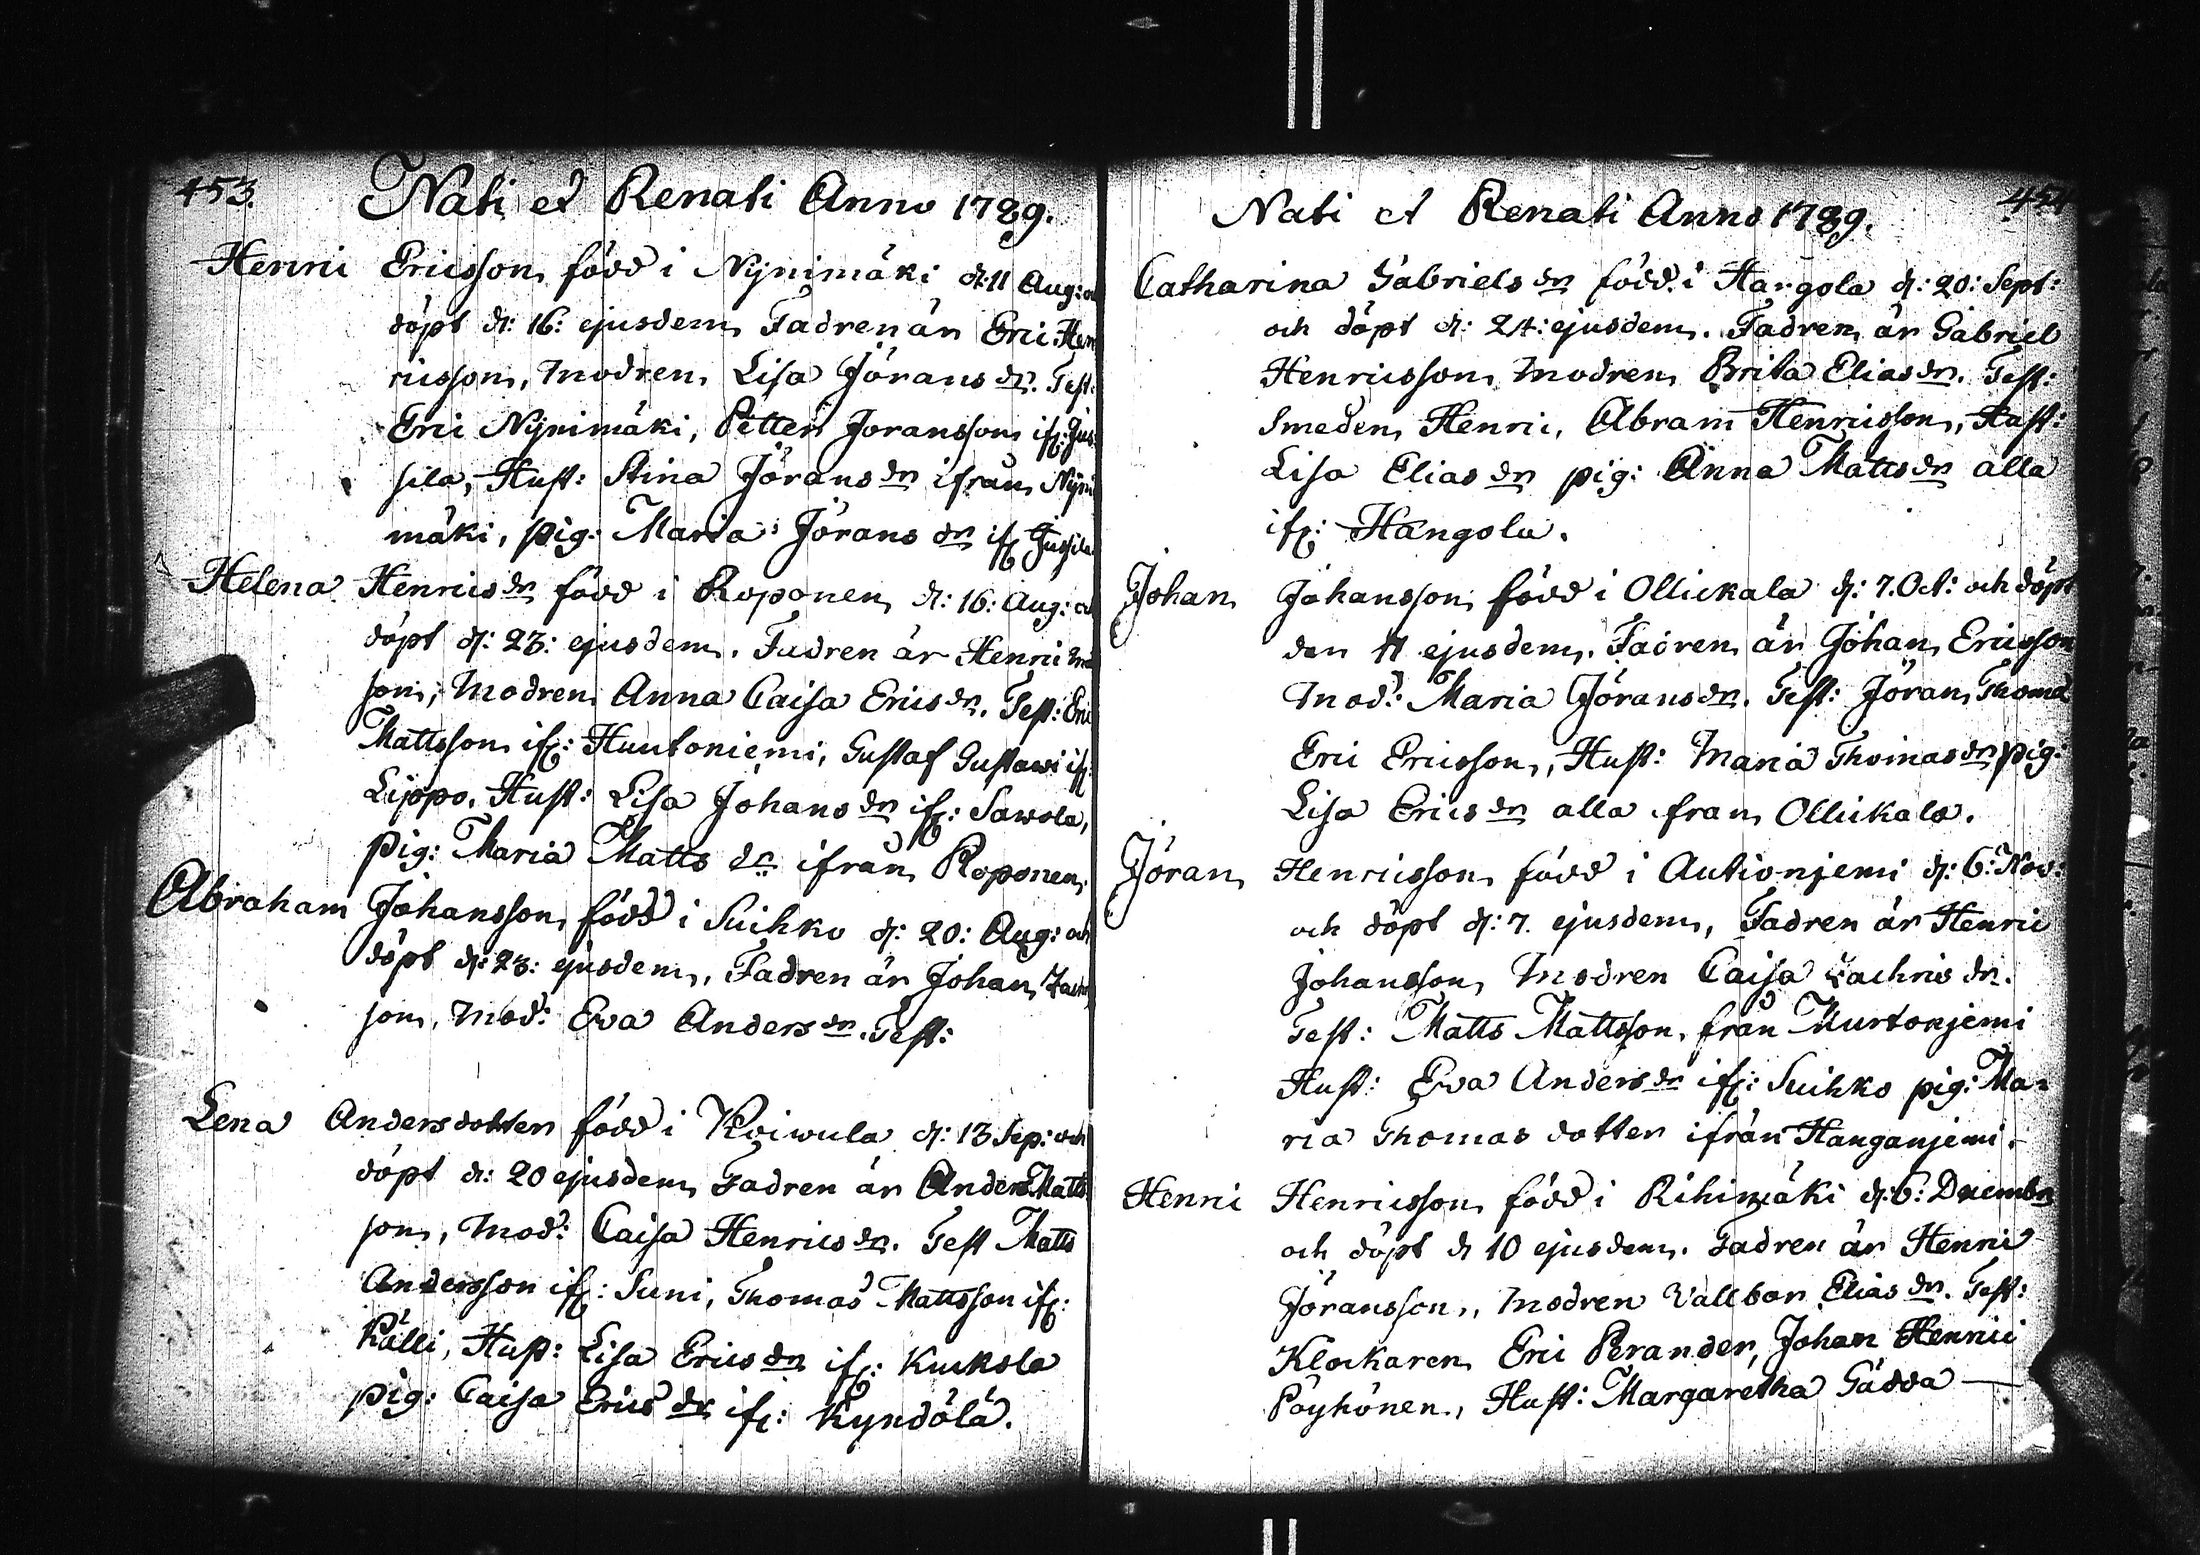 453.
Nati et Renati Anno 1789.
Henric Ericsson född i Nynimäki d: 11 Aug: och
döpt d: 16: ejusdem Fadren är Eric Hen
ricsson, Modren Lisa Jörans dr. Test:
Eric Nynimäki, Petter Joransson ifr: Jus
sila, Hust: Stina Jörans dr ifrån Nyni
mäki, pig: Maria Jörans dr ifr Jussila
Helena Henrics dr född i Roponen d: 16: Aug: och
döpt d: 23: ejusdem. Fadren är Henric
son, Modren Anna Caisa Erics dr. Test: Eric
Mattsson ifr: Huutoniemi, Gustaf Gustawi ifr:
Lippo, Hust: Lisa Johans dr ifr: Sawola,
pig: Maria Matts dr ifrån Roponen.
Abraham Johansson född i Suihko d: 20: Aug: och
döpt d: 23: ejusdem, Fadren är Johan Zachri
son, Mod: Eva Anders dr. Test:
Lena Andersdotter född i Koiwula d: 13 Sep: och
döpt d: 20 ejusdem Fadren är Anders Matts
son, Mod: Caisa Henrics dr. Test Matts
Andersson ifr: Suni, Thomas Mattsson ifr:
Pälli, Hust: Lisa Erics dr ifr: Kuckola
pig: Caisa Erics dr ifr: Kyndölä.
454
Nati et Renati Anno 1789.
Catharina Gabriels dr född i Hangola d: 20: Sept:
och döpt d: 24: ejusdem. Fadren är Gabriel
Henricsson Modren Brita Elias dr. Test:
Smeden Henric, Abram Henricsson, Hust:
Lisa Elias dr pig: Anna Matts dr alla
ifr: Hangola.
Johan Johansson född i Ollickala d: 7. Oct: och döpt
den 11 ejusdem. Fadren är Johan Ericsson
Mod: Maria Jörans dr. Test: Jöran Thoma
Eric Ericsson, Hust: Maria Thomas dr pig:
Lisa Erics dr alla fran Ollickala.
Jöran Henricsson född i Autionjemi d: 6: Nov:
och döpt d: 7. ejusdem, Fadren är Henric
Johansson Modren Caisa Zachris dr.
Test: Matts Mattsson från Kurtonjemi
Hust: Eva Anders dr ifr: Suihko pig: Ma=
ria Thomas dotter ifrån Hanganjemi.
Henric Henricsson född i Rihimäki d: 6: Decembr
och döpt d 10 ejusdem. Fadren är Henric
Jöransson, Modren Vallbor Elias dr. Test:
Klockaren Eric Perander, Johan Henrici
Pöyhönen, Hust: Margaretha Gädda —